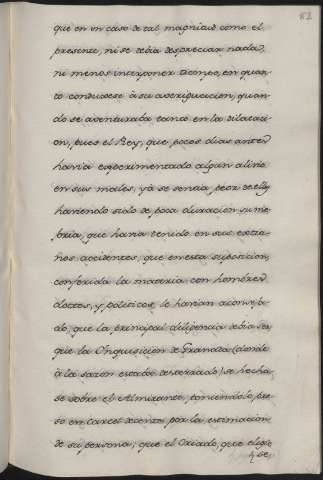 que en un caso de tal magnitud como el
presente, ni se debia despreciar nada,
ni menos interponer tiempo, en quan-
to conduxese à su averiguacion, quan-
do se aventuraba tanto en la dilacci-
on, pues el Rey, que pocos dias antes
havia experimentado algun alivio
en sus males, yà se sentia peor de ellos
haviendo sido de poca duracion su me-
joria, que havia tenido en sus extra-
ños accidentes, que en esta suposicion,
conferida la materia con hombres
doctos, y politicos, le havian aconseja-
do, que la principal diligencia debia ser,
que la Ynquisicion de Granada (donde
à la sazon estaba desterrado) se hecha-
se sobre el Almirante, poniendole pre-
so en carcel decente por la estimacion
de su persona; que el Criado, que eligie